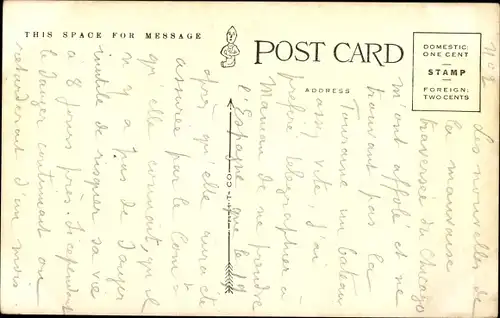 THIS SPACE FOR MESSAGE
POST CARD
ADDRESS
DOMESTIC:
ONE CENT
STAMP
FOREIGN:
TWO CENTS
Les nouvelles de
la mauvaise
traversée du Chicago
m'ont affolé et ne
trouvant pas la
Touraine un bateau
assez vite j'ai
préféré télégraphier à
Maman de ne prendre
l'Espagne que le 19
après qu'elle aura été
assurée par le Con=
qu'elle connait, qu'il
n'y a pas de danger
inutile de risquer sa vie
à 8 jours près. Si cependant
le danger continuait on
retarderait d'un mois.